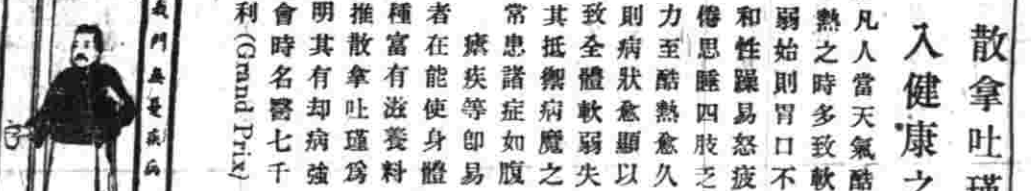 散拿吐瑾
入健康之
凡人當天氣酷
熱之時多致軟
弱始則胃口不
和性躁易怒疲
倦思睡四肢乏
力至酷熱愈久
則病狀愈顯以
致全體軟弱失
其抵禦病魔之
常患諸症如腹
瘧疾等卽易
者在能使身體
種富有滋養料
推散拿吐瑾爲
明其有却病強
會時名醫七千
利 (Grand Prix)
我門無憂疾病